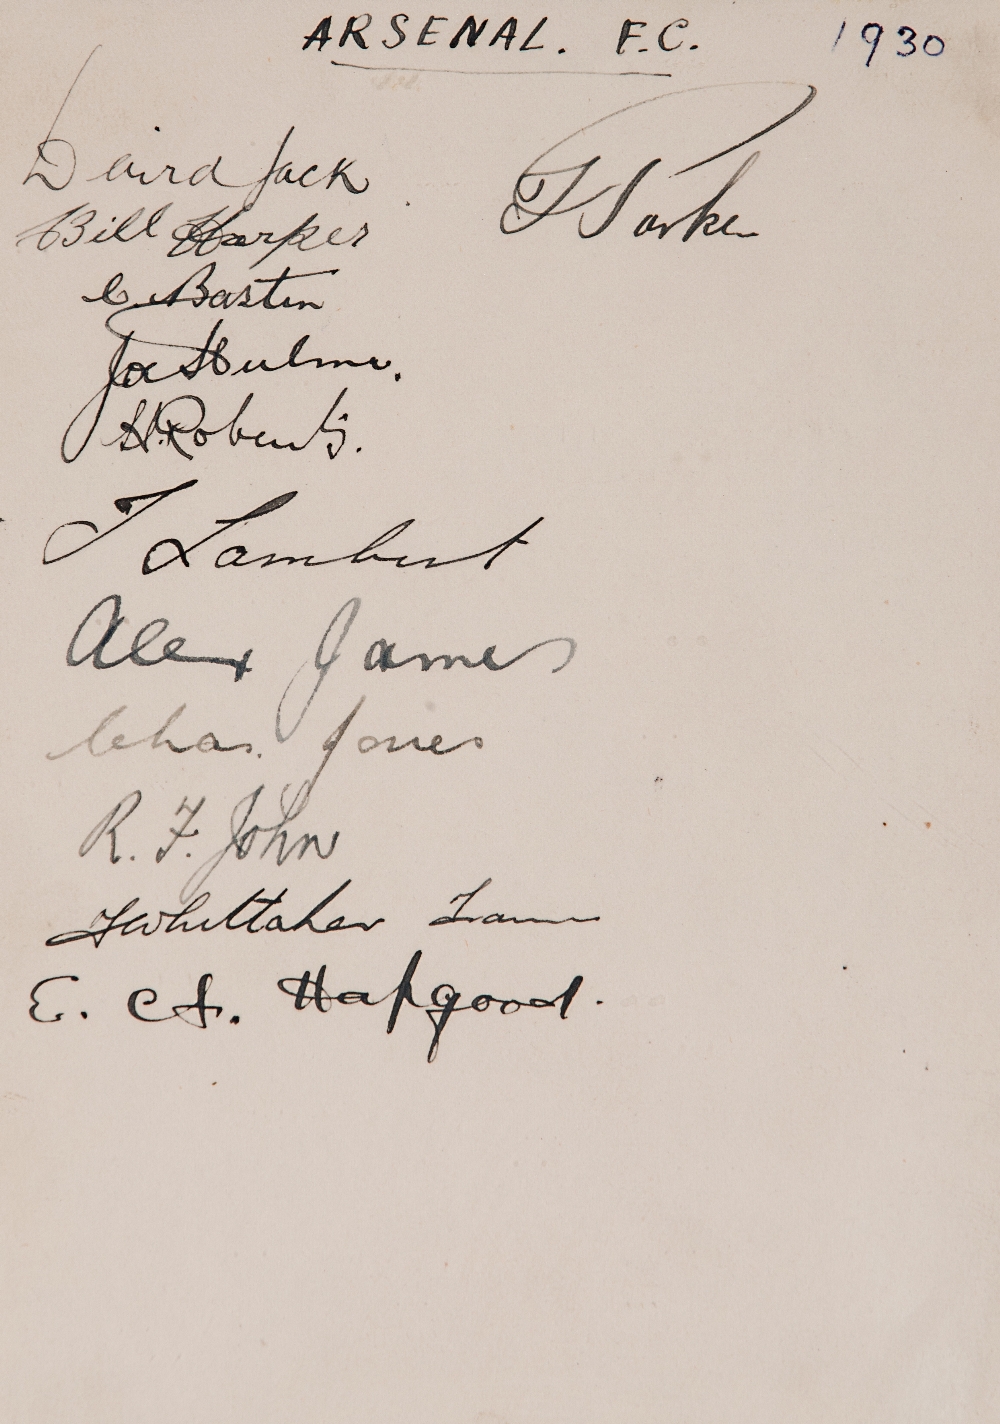 ARSENAL. F.C. 1930
David Jack
T Parker
Bill Harper
C. Bastin
Joe Hulme.
H. Roberts.
J Lambert
Alex James
Chas. Jones
R. F. John
T Whittaker
E. C A. Hapgood.